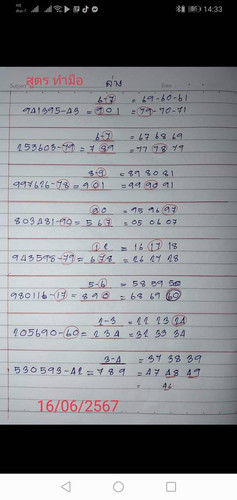 14:33
สูตร ทำมือ
ล่าง
6-7 = 69-60-61
941395-43 = 901 = 79-70-71
6-7 = 67 68 69
253603-79 = 789 = 77 78 79
8-9 = 89 80 81
997626-78 = 901 = 99 90 91
= 95 96 97
803481-90 = 567 = 05 06 07
12 = 16 17 18
943598-77 = 678 = 26 27 28
5-6 = 58 59 50
980116-17 = 890 = 68 69 60
2-3 = 22 23 24
205690-60 = 234 = 32 33 34
3-4 = 37 38 39
530593-42 = 789 = 47 48 49
46
16/06/2567